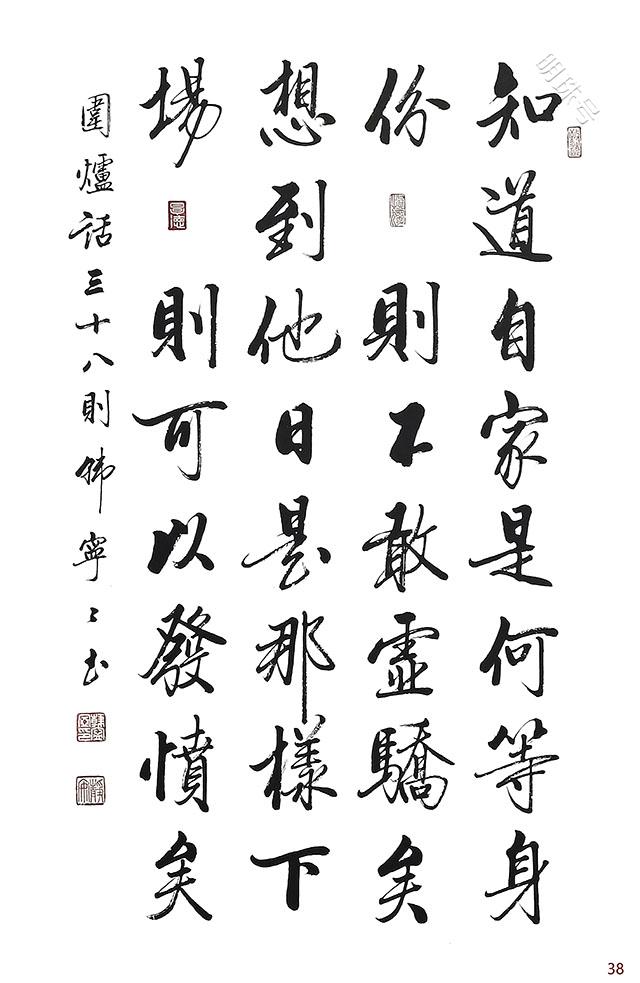 知道自家是何等身
份則不敢虛驕矣
想到他日是那樣下
場則可以發憤矣
圍爐話三十八則 寧〻书
明珠号
38